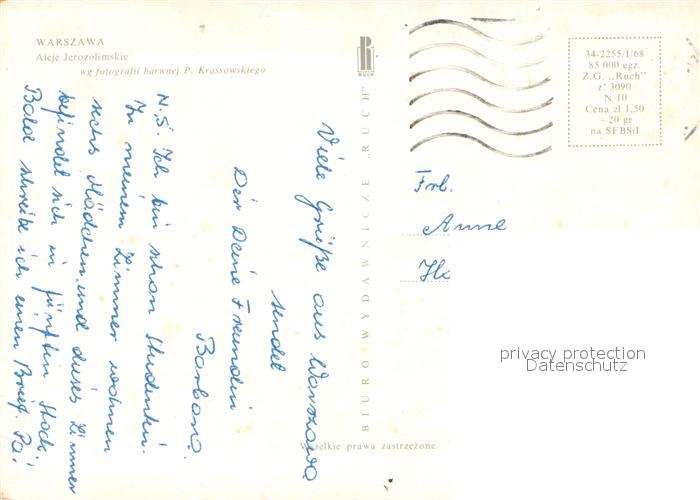 WARSZAWA
Aleje Jerozolimskie
wg fotografii barwnej P. Krassowskiego
RUCH
34-2255/I/68
85 000 egz.
Z.G. „Ruch"
z. 3090
N 10
Cena zł 1,50
+ 20 gr
na SFBSiI
BIURO WYDAWNICZE „RUCH"
Wszelkie prawa zastrzeżone
Viele Grüße aus Warszawa
sendet
Dir Deine Freundin
Barbara.
N.S. Ich bin schon Studentin.
In meinem Zimmer wohnen
sechs Mädchen und dieses Zimmer
befindet sich in fünften Stock.
Bald schreibe ich einen Brief. Pa!
Frl.
Anne
privacy protection
Datenschutz